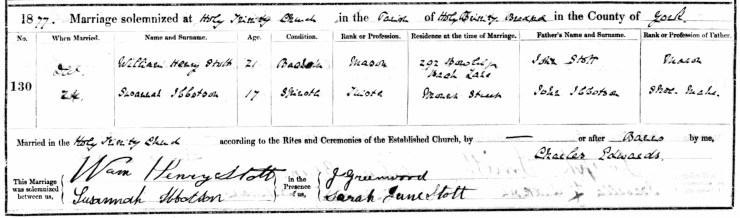 1877. Marriage solemnized at Holy Trinity Church in the Parish of Holy Trinity in the County of York
No. When Married. Name and Surname. Age. Condition. Rank or Profession. Residence at the time of Marriage. Father's Name and Surname. Rank or Profession of Father.
130 Dec William Henry Stott 21 Mason 292 Bowling Back Lane John Stott Mason
24 Susannah Ibbotson 17 Street John Ibbotson
Married in the Holy Trinity Church according to the Rites and Ceremonies of the Established Church, by — or after Banns by me,
Charles Edwards.
This Marriage was solemnized between us, { Wam Henry Stott in the Presence of us, { J Greenwood
Susannah Ibbotson Sarah Jane Stott